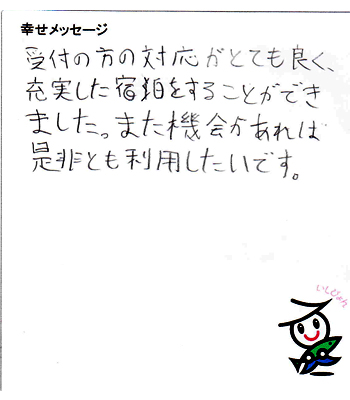 幸せメッセージ
受付の方の対応がとても良く、
充実した宿泊をすることができ
ました。また機会があれば
是非とも利用したいです。
いしぴょん